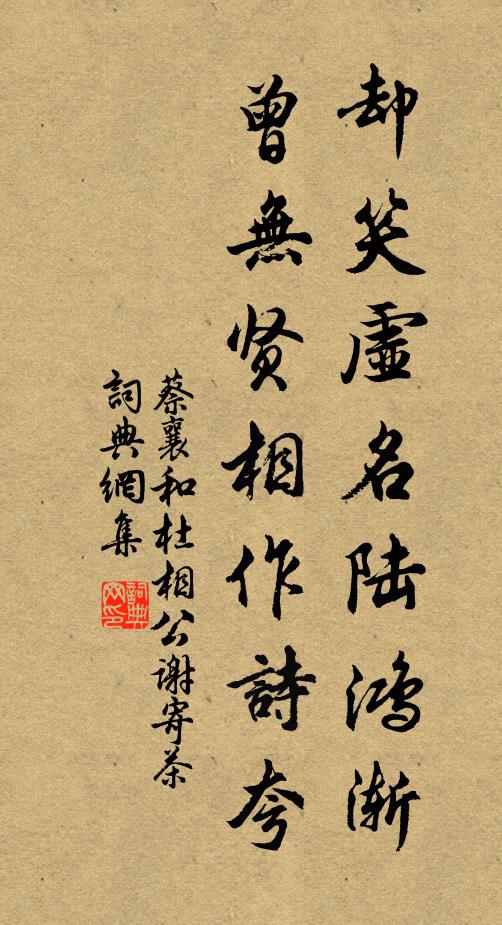 却笑虚名陆鸿渐
曾無贤相作詩夸
蔡襄和杜相公謝寄茶
詞典網集
詞典网印